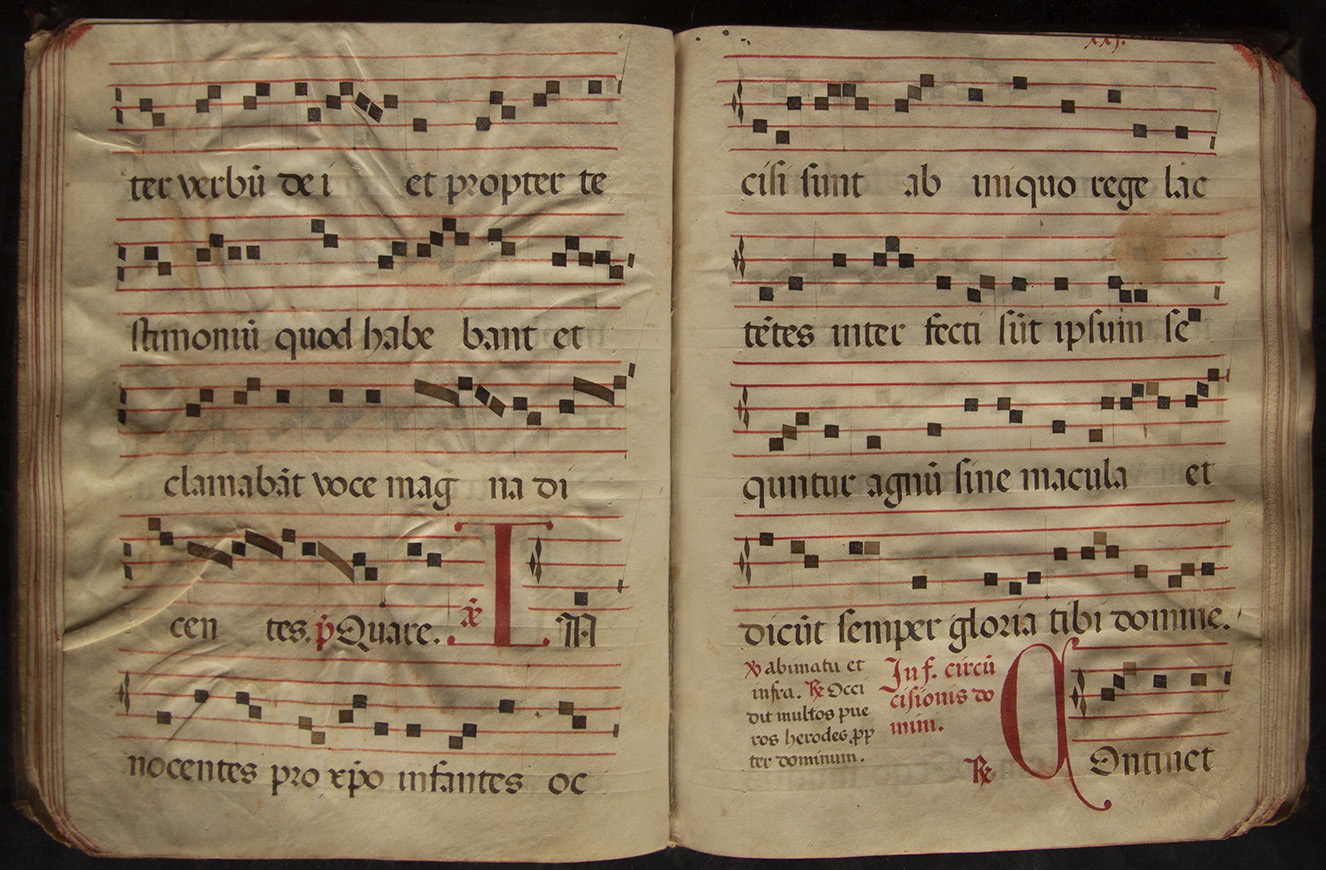 ter verbū dei et propter te
stimoniū quod habe bant et
clamabāt voce mag na di
cen tes. p̄ Quare. L IN
nocentes pro xp̄o infantes oc
xxj.
cisi sunt ab iniquo rege lac
tētes inter fecti sūt ipsum se
quntur agnū sine macula et
dicūt semper gloria tibi domine.
℣ abimatu et
infra. ℟ Occi
dit multos pue
ros herodes pp
ter dominum.
In f. circū
cisionis do
mini.
℟ Continet